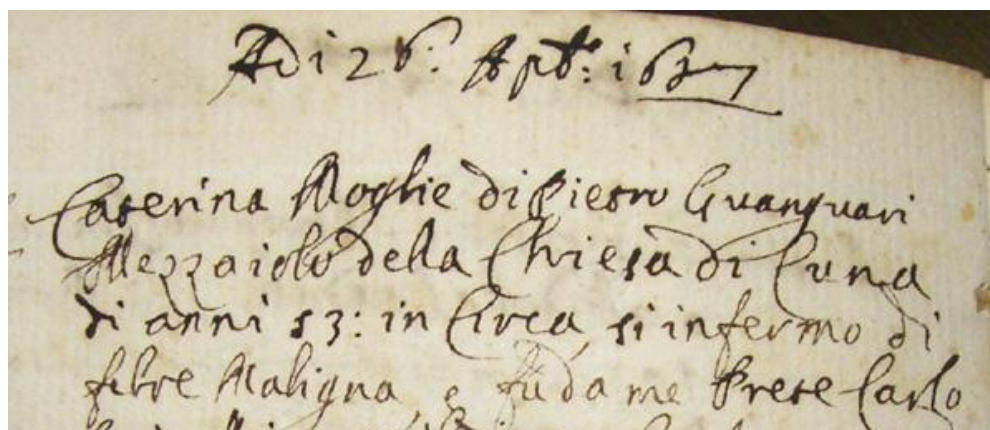 Adi 26: 7bre: 1637
Caterina Moglie di Pietro Guanguari
Mezzaiolo della Chiesa di Cuna
di anni 53: in Circa, si infermo di
febre Maligna, e fu da me Prete Carlo